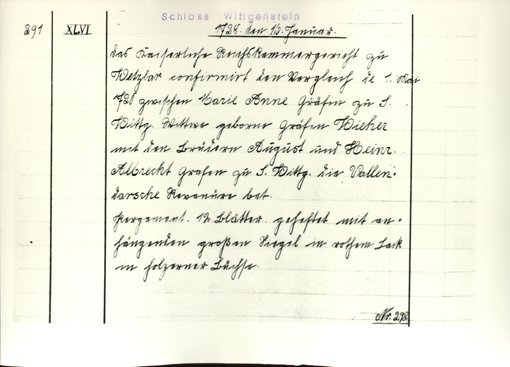 Schloss Wittgenstein
291 XLVI 1728. den 16. Januar.
das Kaiserliche Reichskammergericht zu
Wetzlar confirmirt den Vergleich de 1. Mai
1721 zwischen Marie Anne Gräfin zu S.
Wittg. Wittwe geborne Gräfin Wieher
mit den Brüdern August und Heinr.
Albrecht Grafen zu S. Wittg. die Vallen-
darsche Revenüre bet.
Pergament. 12 Blätter geheftet mit an-
hängenden großen Siegel in rothem Lack
in hölzerner Büchse.
Nr. 292